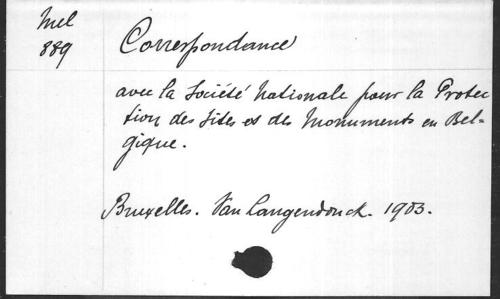 Mel
889
Correspondance
avec la Société Nationale pour la Protec
tion des Sites et des Monuments en Bel-
gique.
Bruxelles. Van Langendonck. 1903.